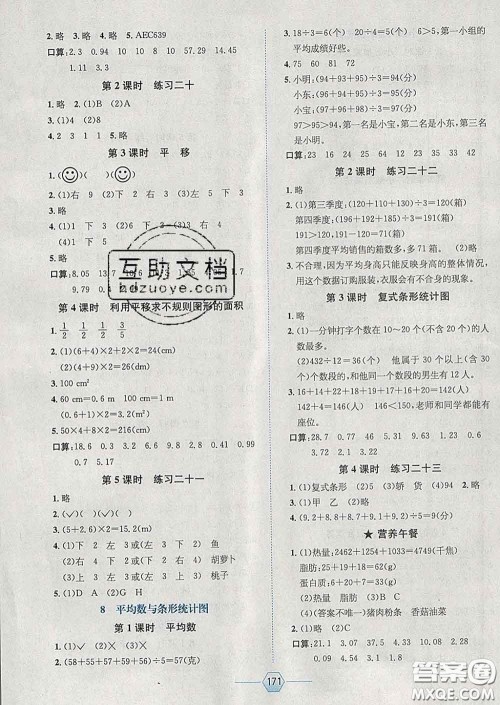 2.略 3.略 4.略 5.AEC639
口算:2.3 0.94 10 10 0.38 15 4.5
1.11 3.3
第2课时 练习二十
1.略 2.(1)B (2)A
3.(1)4 (2)8
4.2 3 1 1 5.略
第3课时 平 移
2.(1)右 9 下 2 右 3 (2)左 5 下 3
3.略
(4)1 下 5 2.略
口算:8.05
第4课时 利用平移求不规则图形的面积
2.(1)(6+4)×2×2=24(cm)
(2)(8+6)×2=28(cm)
3.100 cm²
4.60cm=0.6m 0.6×3=1.8(m)
5.50×4+8×2=216(cm)
口算:18.6 0.3 32 3.2 0.09 10 10
0.38 15 4.5
第5课时 练习二十一
1.略
3.(5+2.6)×2=15.2(m)
4.(1)下 2 左 3(或左 3 下 2) 鱼
(2)下 4 右 3(或右 3 下 4) 胡萝卜
(3)上 2 左 3(或左 3 上 2) 桃子
5.(1)D (2)A (3)G H
8 平均数与条形统计图
第1课时 平均数
1.(1)✓ (2)× (3)✓
2.(58+55+57+59+56)÷5=57(克)
3.18÷3=6(个) 20÷4=5(个) 6>5,第一小组的
平均成绩好些。
4.75 60 81 72
5.小明:(94+93+95)÷3=94(分)
小东:(97+92+96)÷3=95(分)
小宝:(90+98+103)÷3=97(分)
97>95>94,第一名是小宝,第二名是小东,第三名
是小明。
口算:23 16 24 25 64 32 23 45 38 42
第2课时 练习二十二
1.略
2.(1)第三季度:(120+110+130)÷3=120(箱)
第四季度:(196+192+185)÷3=191(箱)
第四季度平均销售的箱数多,多71箱。 (2)略
3.不合理,因为平均身高只能反映身高的整体情况,
用这个数据订购服装,服装不会很合身。
第3课时 复式条形统计图
1.略
2.(1)一分钟打字个数在10~20个(不含20个)的人
数最多。
(2)432÷12=36(个) 他属于30~40个(不含40
个)个数段的,和他同一个数段的男生有12人。
3.16+14+20+18+16+14+22+22=142(人)
142+4=146(人) 146<150,老师和同学都能有
座位。
口算:28.7 0.77 0.19 44 1 0.91 27.1
9 3.1 3.8
第4课时 练习二十三
1.(1)复式条形 (2)5 (3)轿 货 (4)2 2.略
3.(1)甲 乙 (2)略
4.(9.2+8.8+9.5+9.1+9.4)÷5=9.2(分)
★营养午餐
1.(1)热量:2462+1254+1033=4749(千焦)
脂肪:25+19+18=62(克)
蛋白质:6+7+11=24(克)
(2)略
(3)C
(4)(答案不唯一)猪肉粉条 香菇油菜
2.略
171
互助文档
hdzuoye.com
答案圈
MXQE.COM